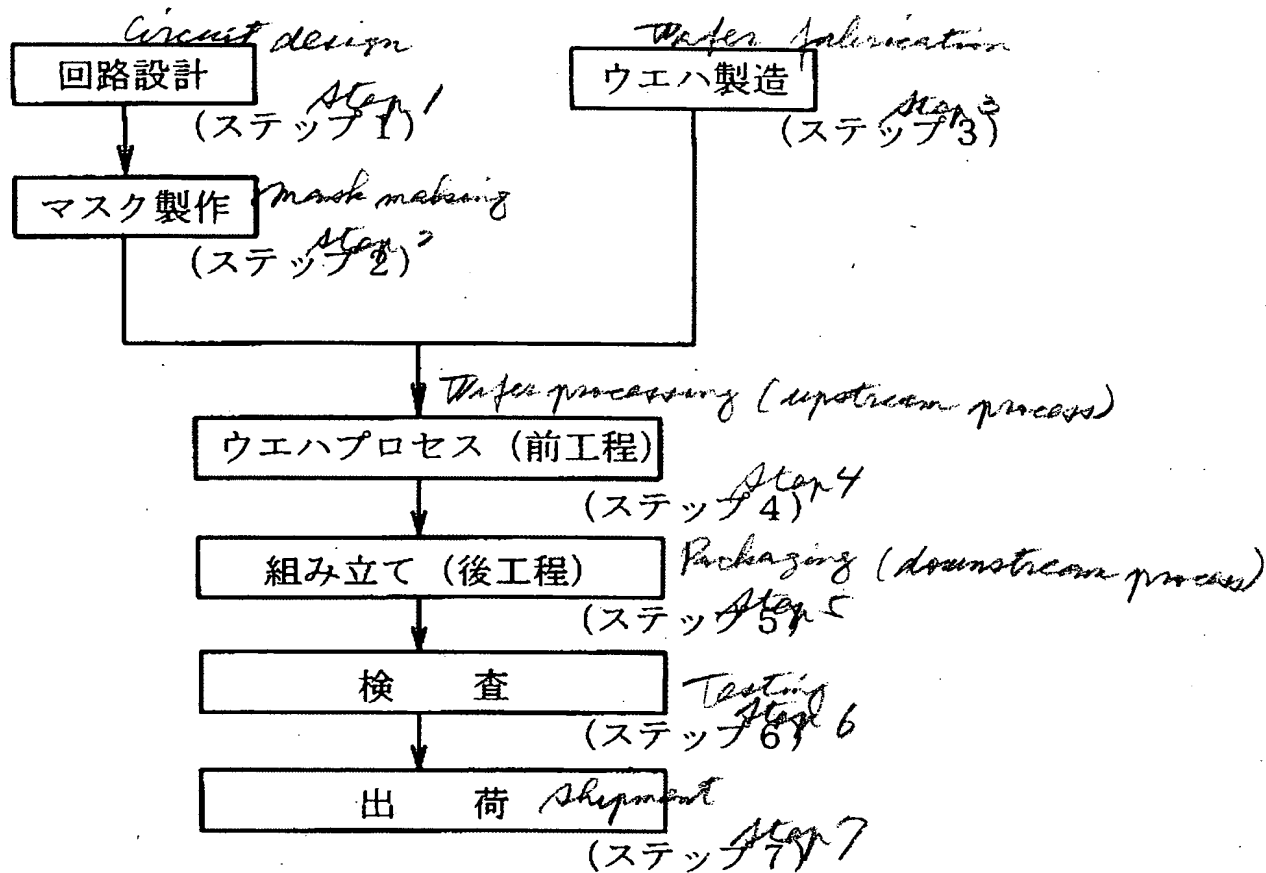 Circuit design
回路設計
Step 1
(ステップ1)
マスク製作
Mask making
Step 2
(ステップ2)
Wafer fabrication
ウエハ製造
Step 3
(ステップ3)
Wafer processing (upstream process)
ウエハプロセス (前工程)
Step 4
(ステップ4)
組み立て (後工程)
Packaging (downstream process)
Step 5
(ステップ5)
検 査
Testing
Step 6
(ステップ6)
出 荷
Shipment
Step 7
(ステップ7)